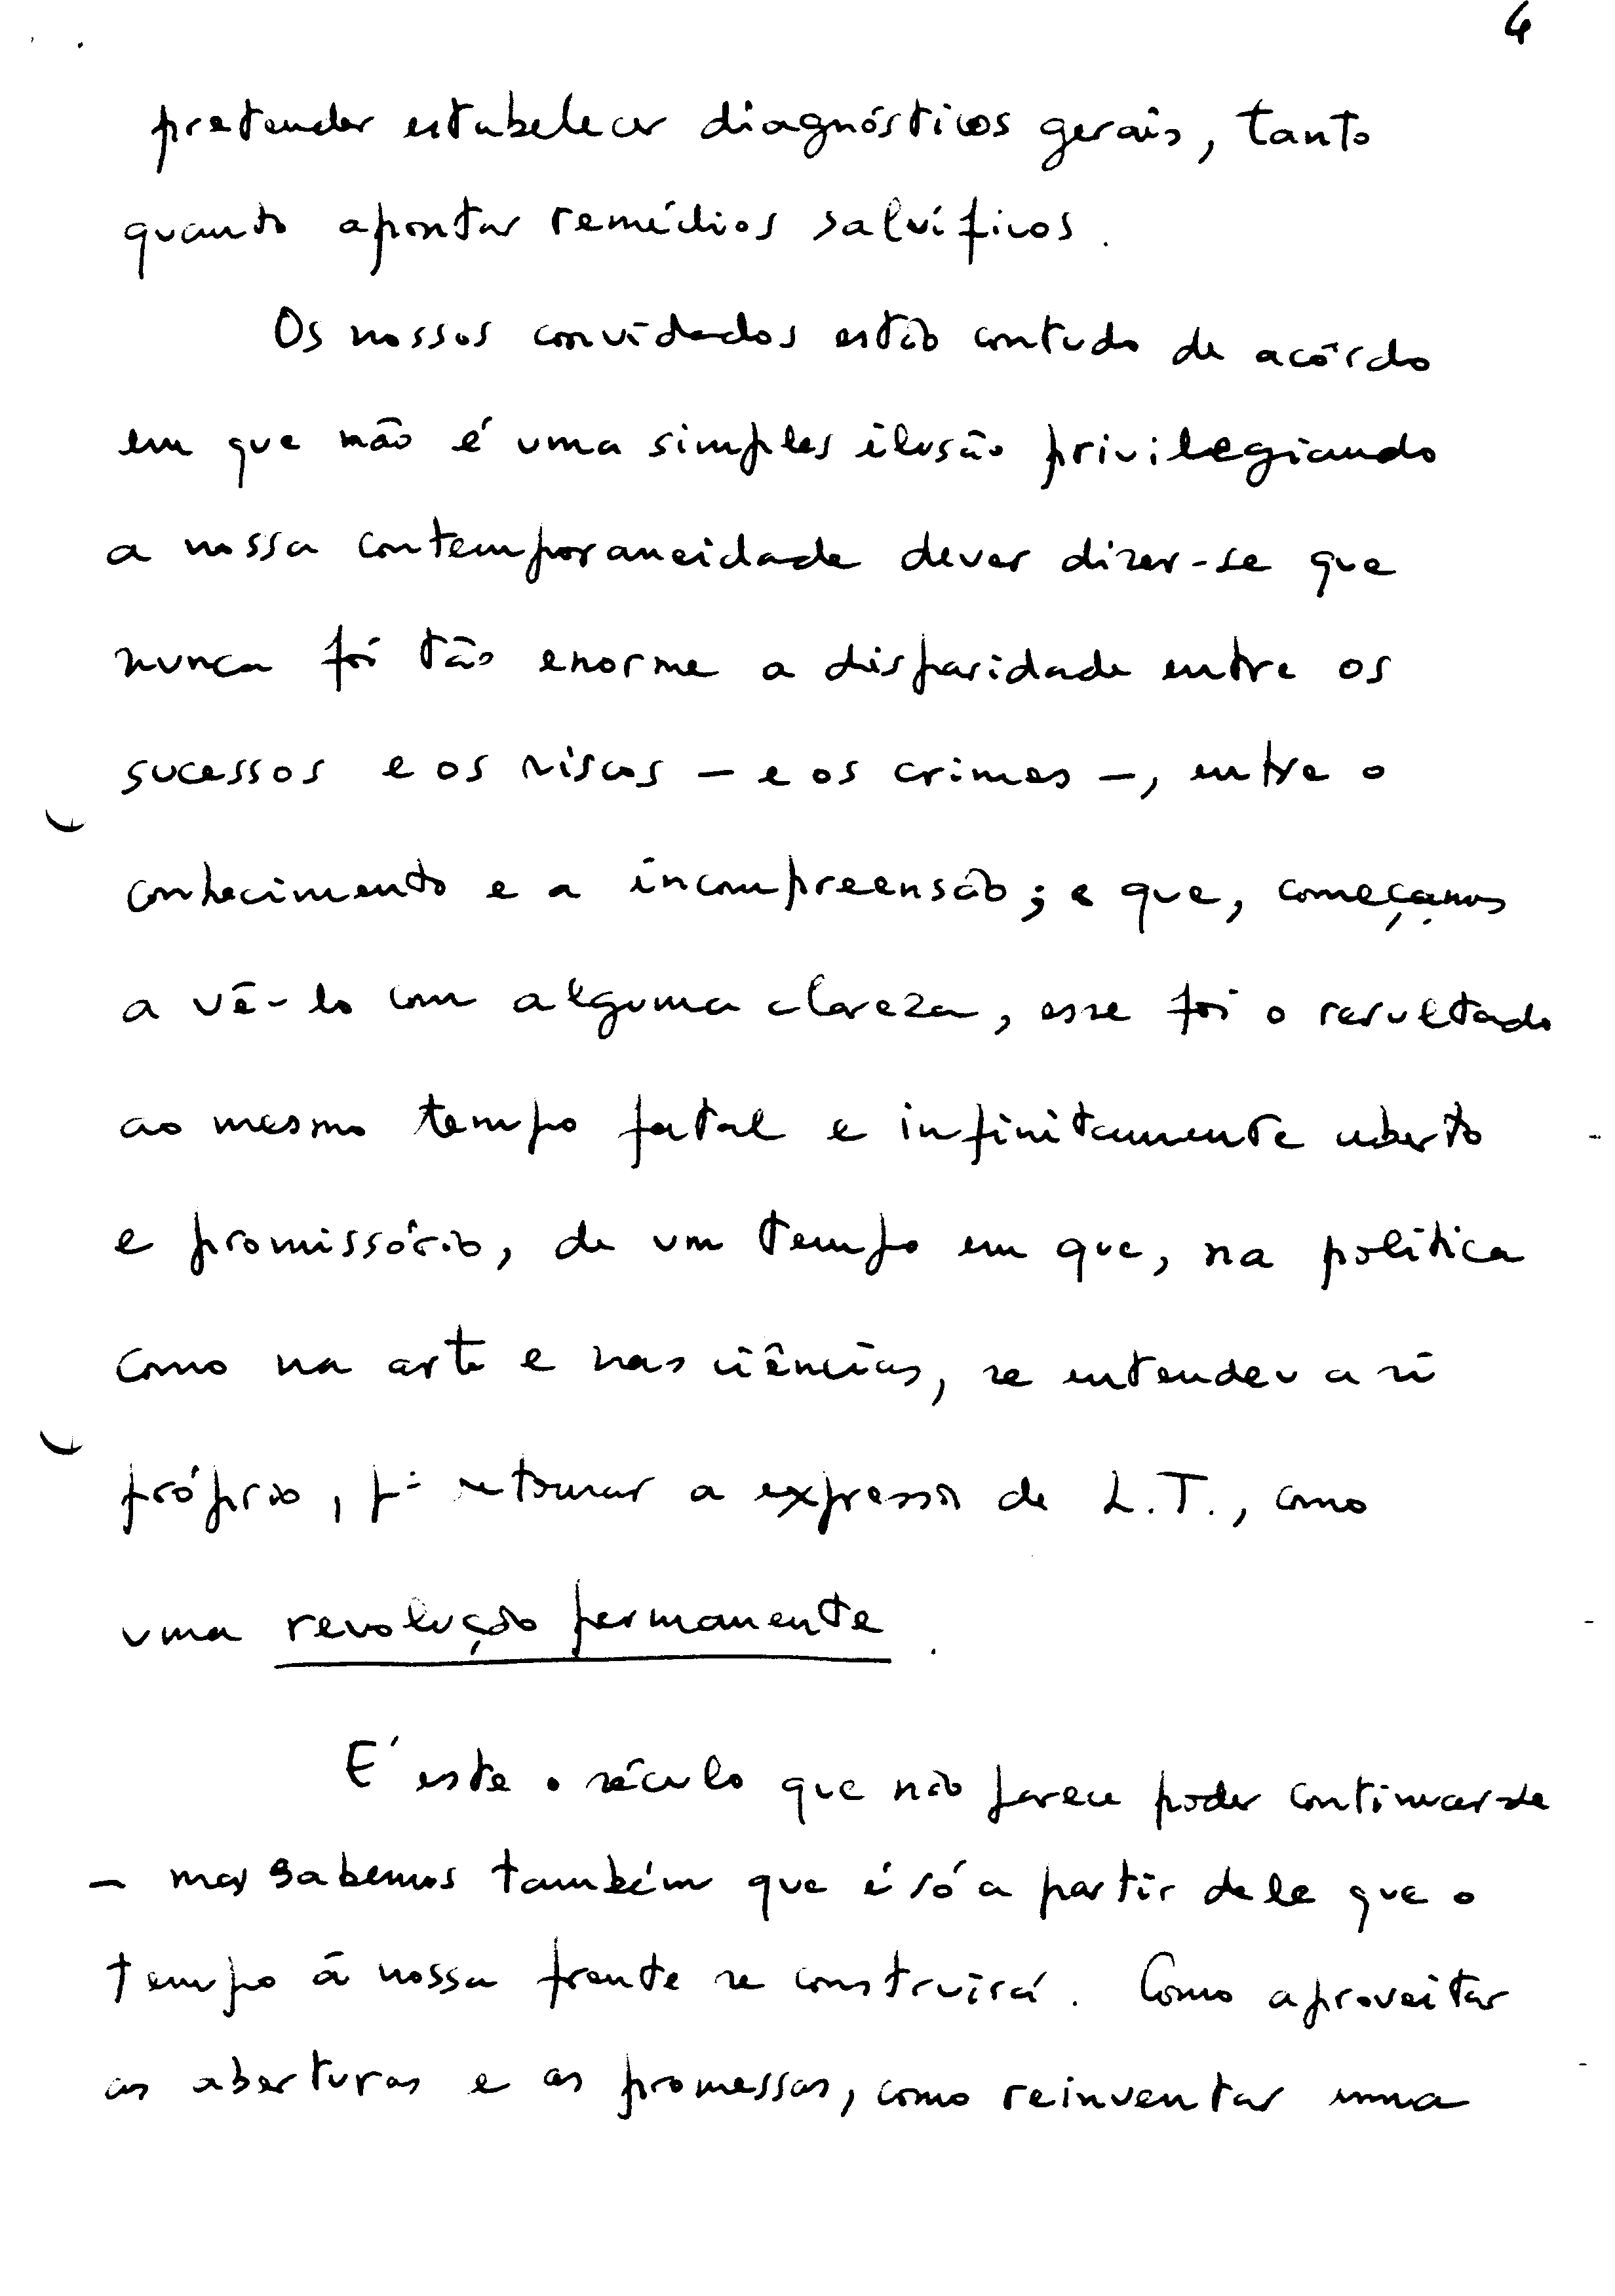 4
pretender estabelecer diagnósticos gerais, tanto
quanto apontar remédios salvíficos.
Os nossos convidados estão contudo de acôrdo
em que não é uma simples ilusão privilegiando
a nossa contemporaneidade dever dizer-se que
nunca foi tão enorme a disparidade entre os
sucessos e os riscos – e os crimes –, entre o
conhecimento e a incompreensão; e que, começamos
a vê-lo com alguma clareza, esse foi o resultado
ao mesmo tempo fatal e infinitamente aberto
e promissório, de um tempo em que, na política
como na arte e nas ciências, se entendeu a si
próprio, pª retomar a expressão de L.T., como
uma revolução permanente.
É este o século que não parece poder continuar-se
– mas sabemos também que é só a partir dele que o
tempo à nossa frente se construirá. Como aproveitar
as aberturas e as promessas, como reinventar uma